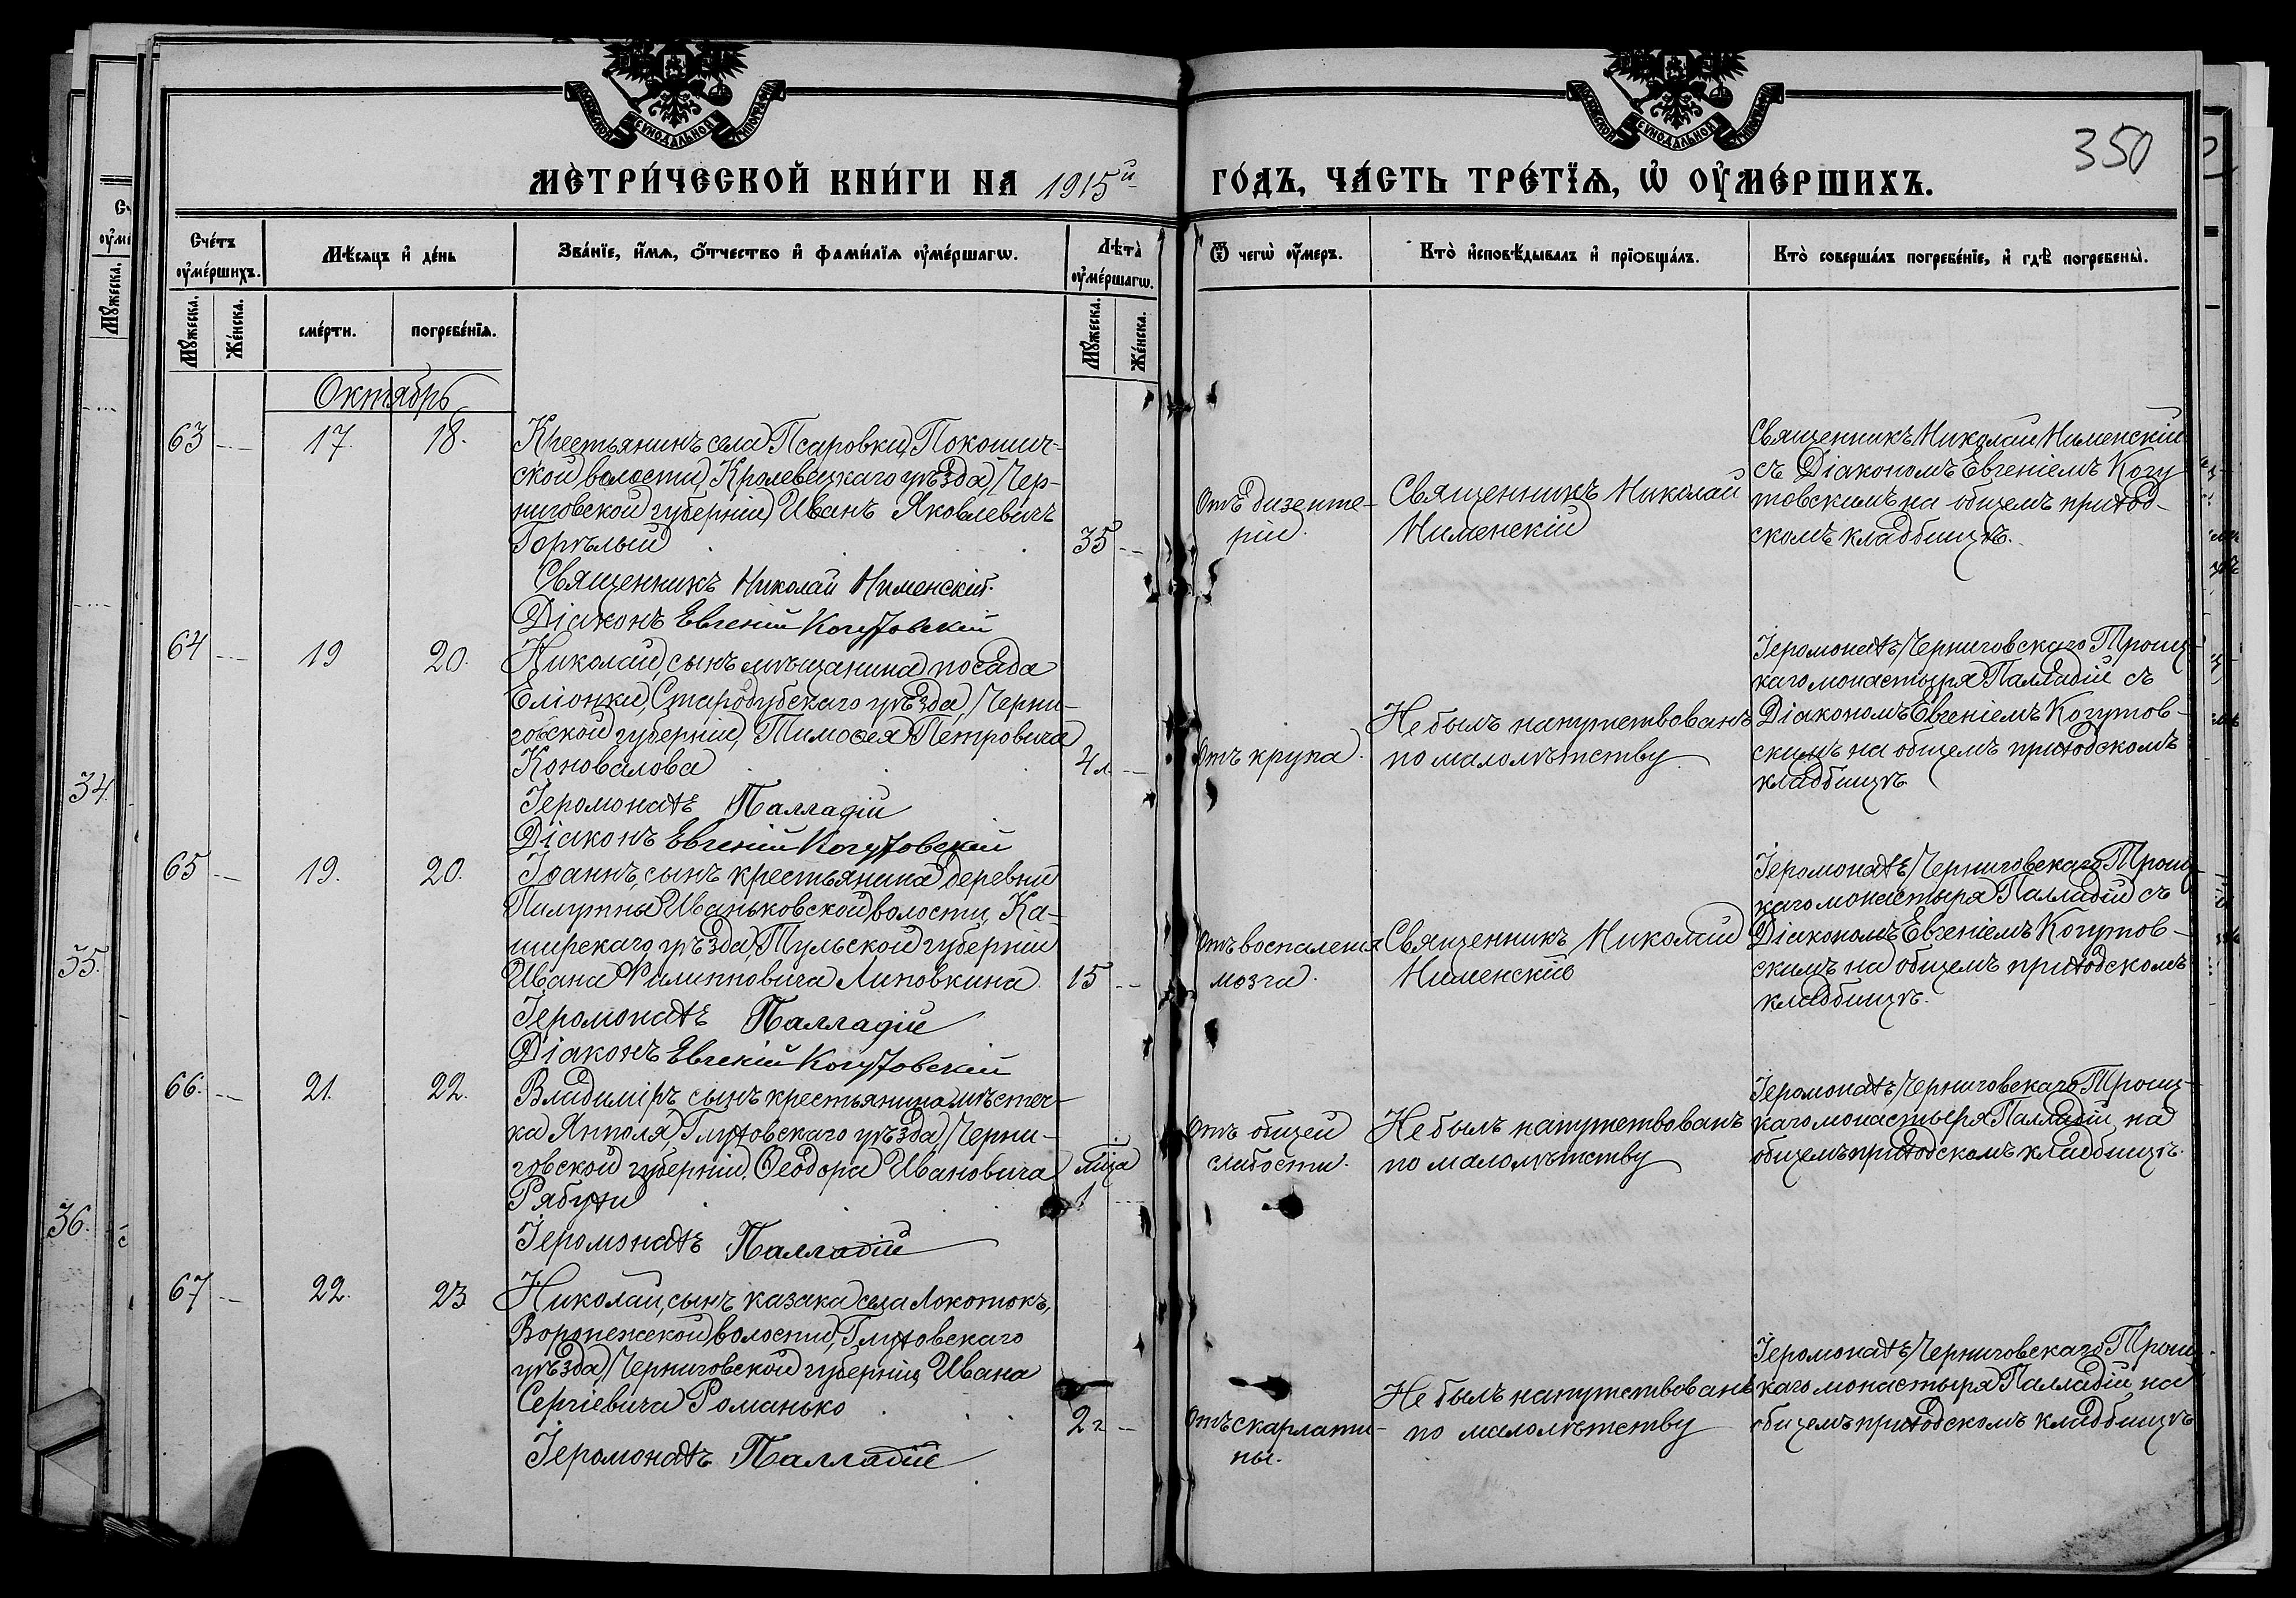 МОСКОВСКОЙ СУНОДАЛЬНОЙ ТИПОГРАФІИ
МОСКОВСКОЙ СУНОДАЛЬНОЙ ТИПОГРАФІИ
350
МЕТРИ́ЧЕСКОЙ КНИ́ГИ НА 1915й ГО́ДЪ, ЧА́СТЬ ТРЕ́ТІѦ, Ѡ ОУ҆МЕ́РШИХЪ.
Сче́тъ оу҆ме́ршихъ.
Мѣ́сяцъ и҆ де́нь
Зва́нїе, и҆́мѧ, ѻ҆́тчество и҆ фами́лїѧ оу҆ме́ршагѡ.
Лѣта̀ оу҆ме́ршагѡ.
Ѿ чегѡ̀ оу҆́меръ.
Кто̀ и҆сповѣ́дывалъ и҆ прїѡбща́лъ.
Кто̀ соверша́лъ погребе́нїе, и҆ гдѣ̀ погребены̀.
Мꙋ́жеска.
Же́нска.
сме́рти.
погребе́нїѧ.
Мꙋ́жеска.
Же́нска.
Октябрь
63 17. 18.
Крестьянинъ села Псаровки, Покошич-
ской волости, Кролевецкаго уѣзда, Чер-
ниговской губерніи, Иванъ Яковлевичъ
Горѣлый
35
Священникъ Николай Нименскій.
Діаконъ Евгеній Когутовскій
Отъ дизенте-
ріи.
Священникъ Николай
Нименскій
Священникъ Николай Нименскій
съ Діакономъ Евгеніемъ Когу
товскимъ на общемъ приход-
скомъ кладбищѣ.
64 19 20.
Николай, сынъ мѣщанина посада
Еліонки, Стародубскаго уѣзда, Черни-
говской губерніи, Тимоѳея Петровича
Коновалова
4 л.
Іеромонахъ Палладій
Діаконъ Евгеній Когутовскій
Отъ крупа.
Не былъ напутствованъ
по малолѣтству
Іеромонахъ Черниговскаго Троиц-
каго монастыря Палладій съ
Діакономъ Евгеніемъ Когутов-
скимъ на общемъ приходскомъ
кладбищѣ
65 19. 20.
Іоаннъ, сынъ крестьянина деревни
Иваньковской волости, Ка-
ширскаго уѣзда, Тульской губерніи
Ивана Филипповича Липовкина.
15
Іеромонахъ Палладій
Діаконъ Евгеній Когутовскій
Отъ воспаленія
мозга.
Священникъ Николай
Нименскій
Іеромонахъ Черниговскаго Троиц-
каго монастыря Палладій съ
Діакономъ Евгеніемъ Когутов-
скимъ на общемъ приходскомъ
кладбищѣ.
66. 21. 22.
Владиміръ сынъ крестьянина мѣстеч-
ка Ямполя, Глуховскаго уѣзда, Черни-
говской губерніи, Ѳеодора Ивановича
Рябухи
1
Іеромонахъ Палладій
Отъ общей
слабости.
Не былъ напутствованъ
по малолѣтству
Іеромонахъ Черниговскаго Троиц-
каго монастыря Палладій на
общемъ приходскомъ кладбищѣ.
67 22. 23
Николай, сынъ казака села Локотокъ,
Воронежской волости, Глуховскаго
уѣзда, Черниговской губерніи, Ивана
Сергіевича Романько
2 г
Іеромонахъ Палладій
Отъ скарлати-
ны.
Не былъ напутствованъ
по малолѣтству
Іеромонахъ Черниговскаго Троиц-
каго монастыря Палладій на
общемъ приходскомъ кладбищѣ
34.
35.
36.